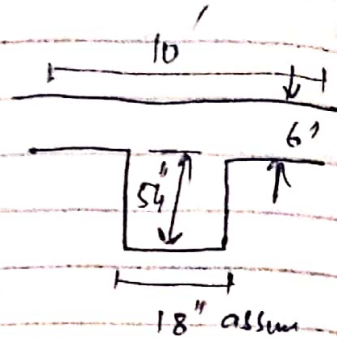 10'
6"
54"
18" assum